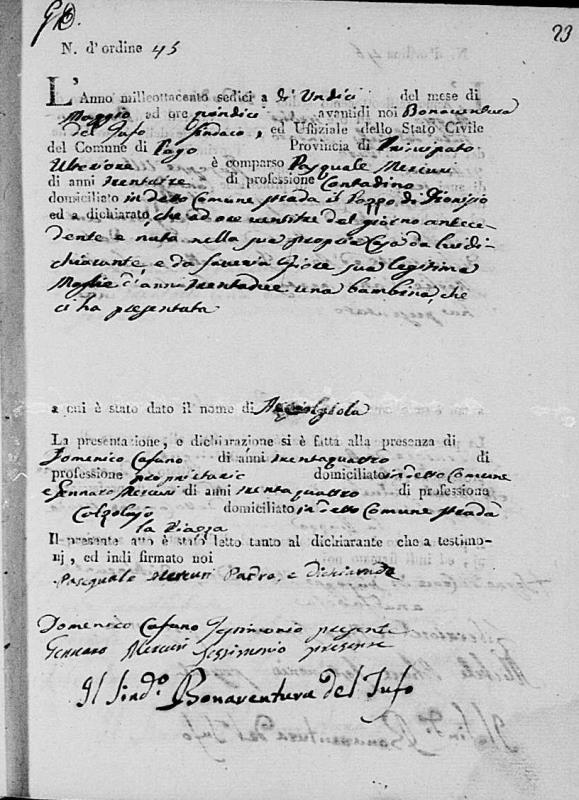 23
N. d'ordine 45
L'Anno milleottocento sedici a dì Undici del mese di
Maggio ad ore quindici avantidi noi Bonaventura
del Tufo Sindaco, ed Uffiziale dello Stato Civile
del Comune di Pago Provincia di Principato
Ulteriore è comparso Pasquale Mercuri
di anni trentatre di professione Contadino
domiciliato in detto Comune strada il Pozzo di Dionisio
ed a dichiarato, che ad ore ventitre del giorno antece-
dente e nata nella sua propria Casa da lui di-
chiarante, e da Saveria Gioie sua legitima
Moglie d'anni trentadue una bambina, che
ci ha presentata
a cui è stato dato il nome di
La presentazione, e dichiarazione si è fatta alla presenza di
Domenico Cafano di anni trentaquattro di
professione proprietario domiciliato in detto Comune
e Gennaro Mercuri di anni trentaquattro di professione
Calzolajo domiciliato in detto Comune strada
la Piazza
Il presente atto è stato letto tanto al dichiarante che a testimo-
nj, ed indi firmato noi
Pasquale Mercuri Padre, e dichiarante
Domenico Cafano Testimonio presente
Gennaro Mercuri Testimonio presente
Il Sind.o Bonaventura del Tufo